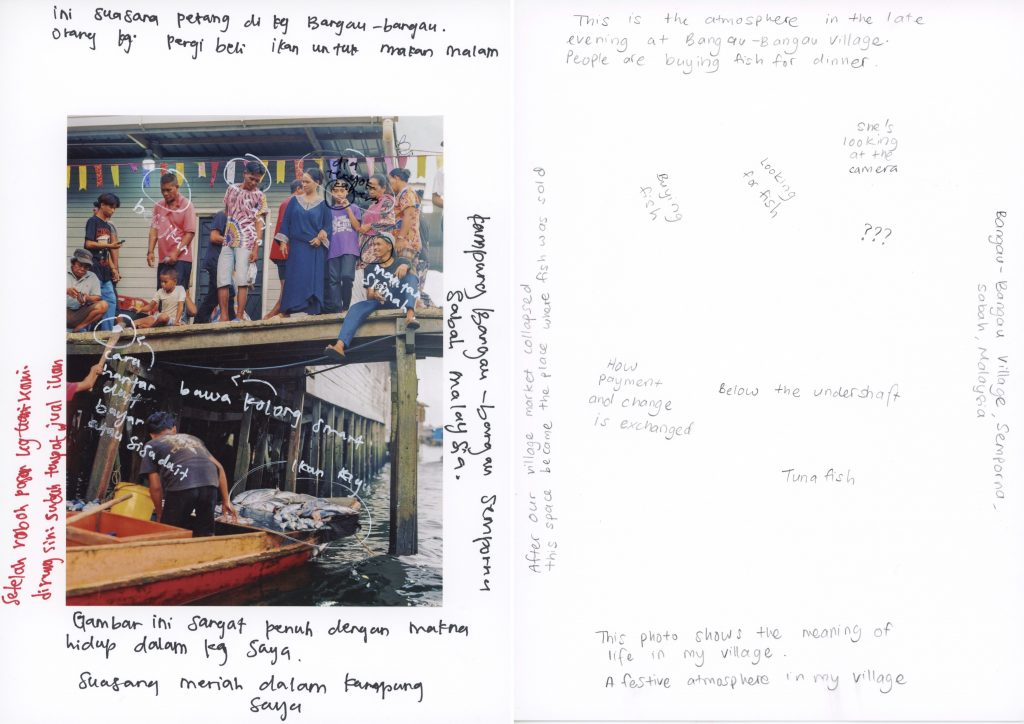 ini suasana petang di kg Bangau-bangau.
Orang kg. pergi beli ikan untuk makan malam
mantai
cara
hantar
duit
bayar
atau sisa duit
bawa kolong
ikan kayu
kampung Bangau-bangau semporna
sabah malaysia.
Setelah roboh pasar kg kami
disini sudah tempat jual ikan
Gambar ini sangat penuh dengan makna
hidup dalam kg saya.
Suasana meriah dalam kampung
saya
This is the atmosphere in the late
evening at Bangau-Bangau village.
People are buying fish for dinner.
She's
looking
at the
camera
Buying
fish
Looking
for fish
???
Bangau-Bangau Village, Semporna,
Sabah, Malaysia
After our village market collapsed
this space became the place where fish was sold
How
payment
and change
is exchanged
Below the undershaft
Tuna fish
This photo shows the meaning of
life in my village.
A festive atmosphere in my village